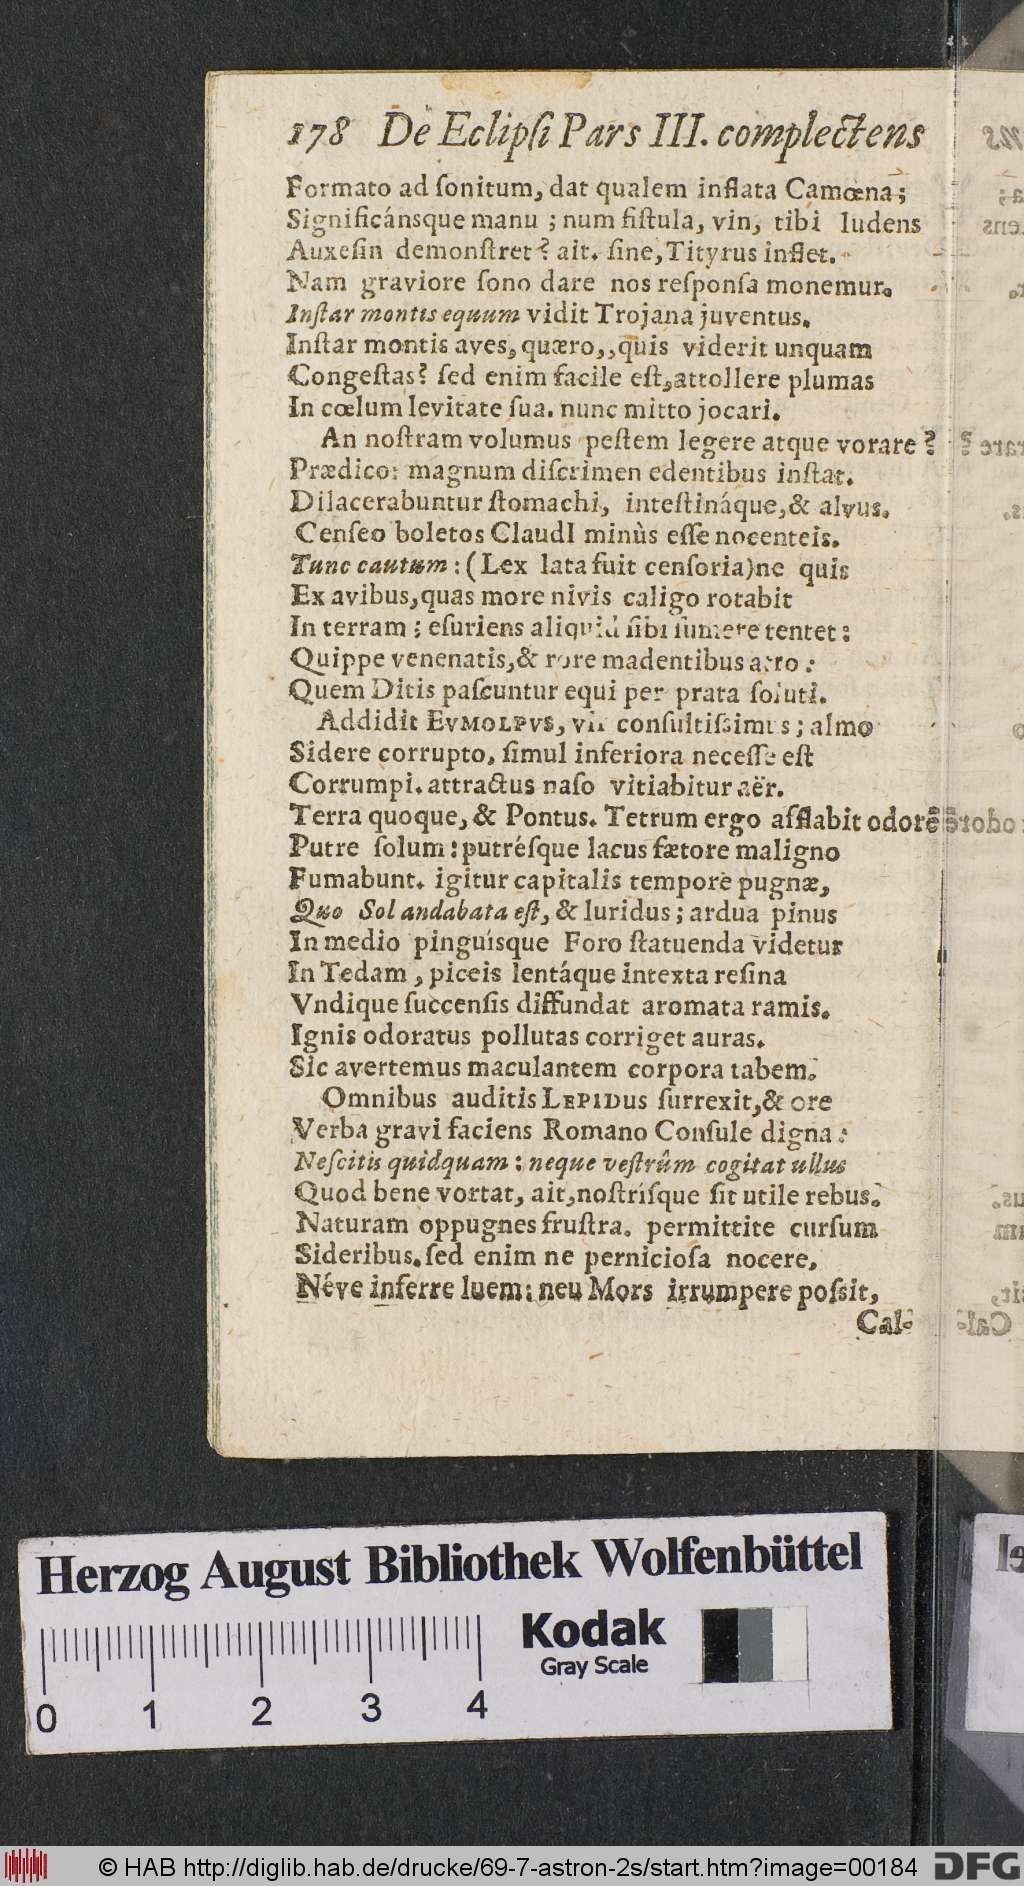 178 De Eclipſi Pars III. complectens
Formato ad ſonitum, dat qualem inflata Camœna;
Significánsque manu ; num fiſtula, vin, tibi ludens
Auxeſin demonſtret? ait. ſine, Tityrus inflet.
Nam graviore ſono dare nos reſponſa monemur.
Inſtar montis equum vidit Trojana juventus.
Inſtar montis aves, quæro,,quis viderit unquam
Congeſtas? ſed enim facile eſt,attollere plumas
In cœlum levitate ſua. nunc mitto jocari.
An noſtram volumus peſtem legere atque vorare?
Prædico: magnum diſcrimen edentibus inſtat.
Dilacerabuntur ſtomachi, inteſtináque,& alvus.
Cenſeo boletos ClaudI minùs eſſe nocenteis.
Tunc cautum : (Lex lata fuit cenſoria)ne quis
Ex avibus,quas more nivis caligo rotabit
In terram ; eſuriens aliquid ſibi ſumere tentet:
Quippe venenatis,& rore madentibus atro:
Quem Ditis paſcuntur equi per prata ſoluti.
Addidit EVMOLPVS, vir conſultiſsimus ; almo
Sidere corrupto, ſimul inferiora neceſſe eſt
Corrumpi. attractus naſo vitiabitur aër.
Terra quoque, & Pontus. Tetrum ergo afflabit odorē
Putre ſolum : putréſque lacus fætore maligno
Fumabunt. igitur capitalis tempore pugnæ,
Quo Sol andabata eſt, & luridus ; ardua pinus
In medio pinguísque Foro ſtatuenda videtur
In Tedam , piceis lentáque intexta reſina
Vndique ſuccenſis diffundat aromata ramis.
Ignis odoratus pollutas corriget auras.
Sic avertemus maculantem corpora tabem.
Omnibus auditis LEPIDus ſurrexit,& ore
Verba gravi faciens Romano Conſule digna:
Neſcitis quidquam : neque veſtrûm cogitat ullus
Quod bene vortat, ait,noſtríſque ſit utile rebus.
Naturam oppugnes fruſtra. permittite curſum
Sideribus. ſed enim ne pernicioſa nocere,
Néve inferre luem: neu Mors irrumpere poſsit,
Cal-
Herzog August Bibliothek Wolfenbüttel
Kodak
Gray Scale
0 1 2 3 4
© HAB http://diglib.hab.de/drucke/69-7-astron-2s/start.htm?image=00184 DFG